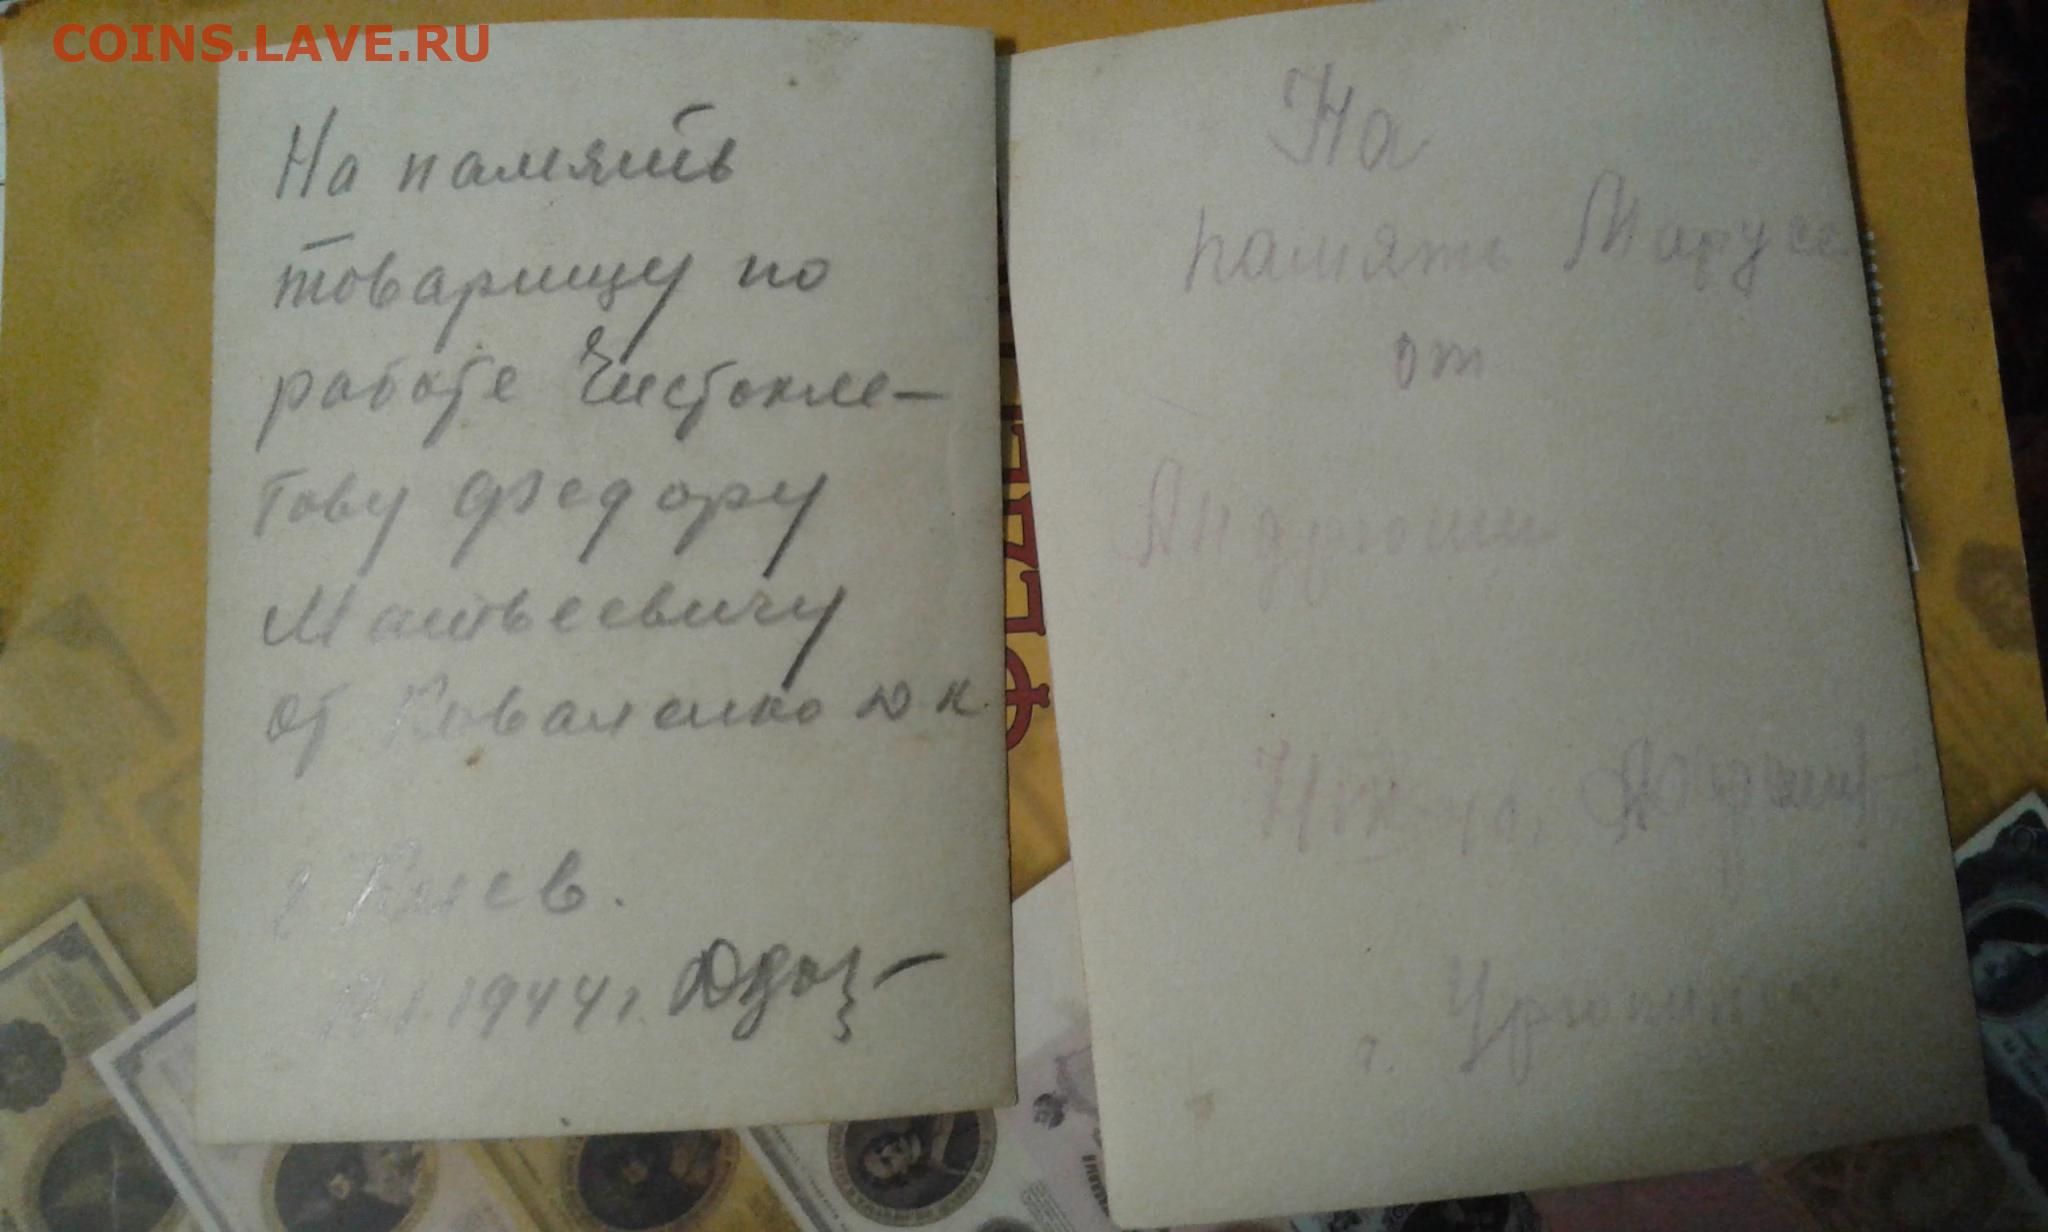 COINS.LAVE.RU
На память
товарищу по
работе Чистокле-
тову Федору
Матвеевичу
от Коваленко
г. Киев.
1.1944 г.
На
память Марусе
от
Андрюши
г. Урюпинск